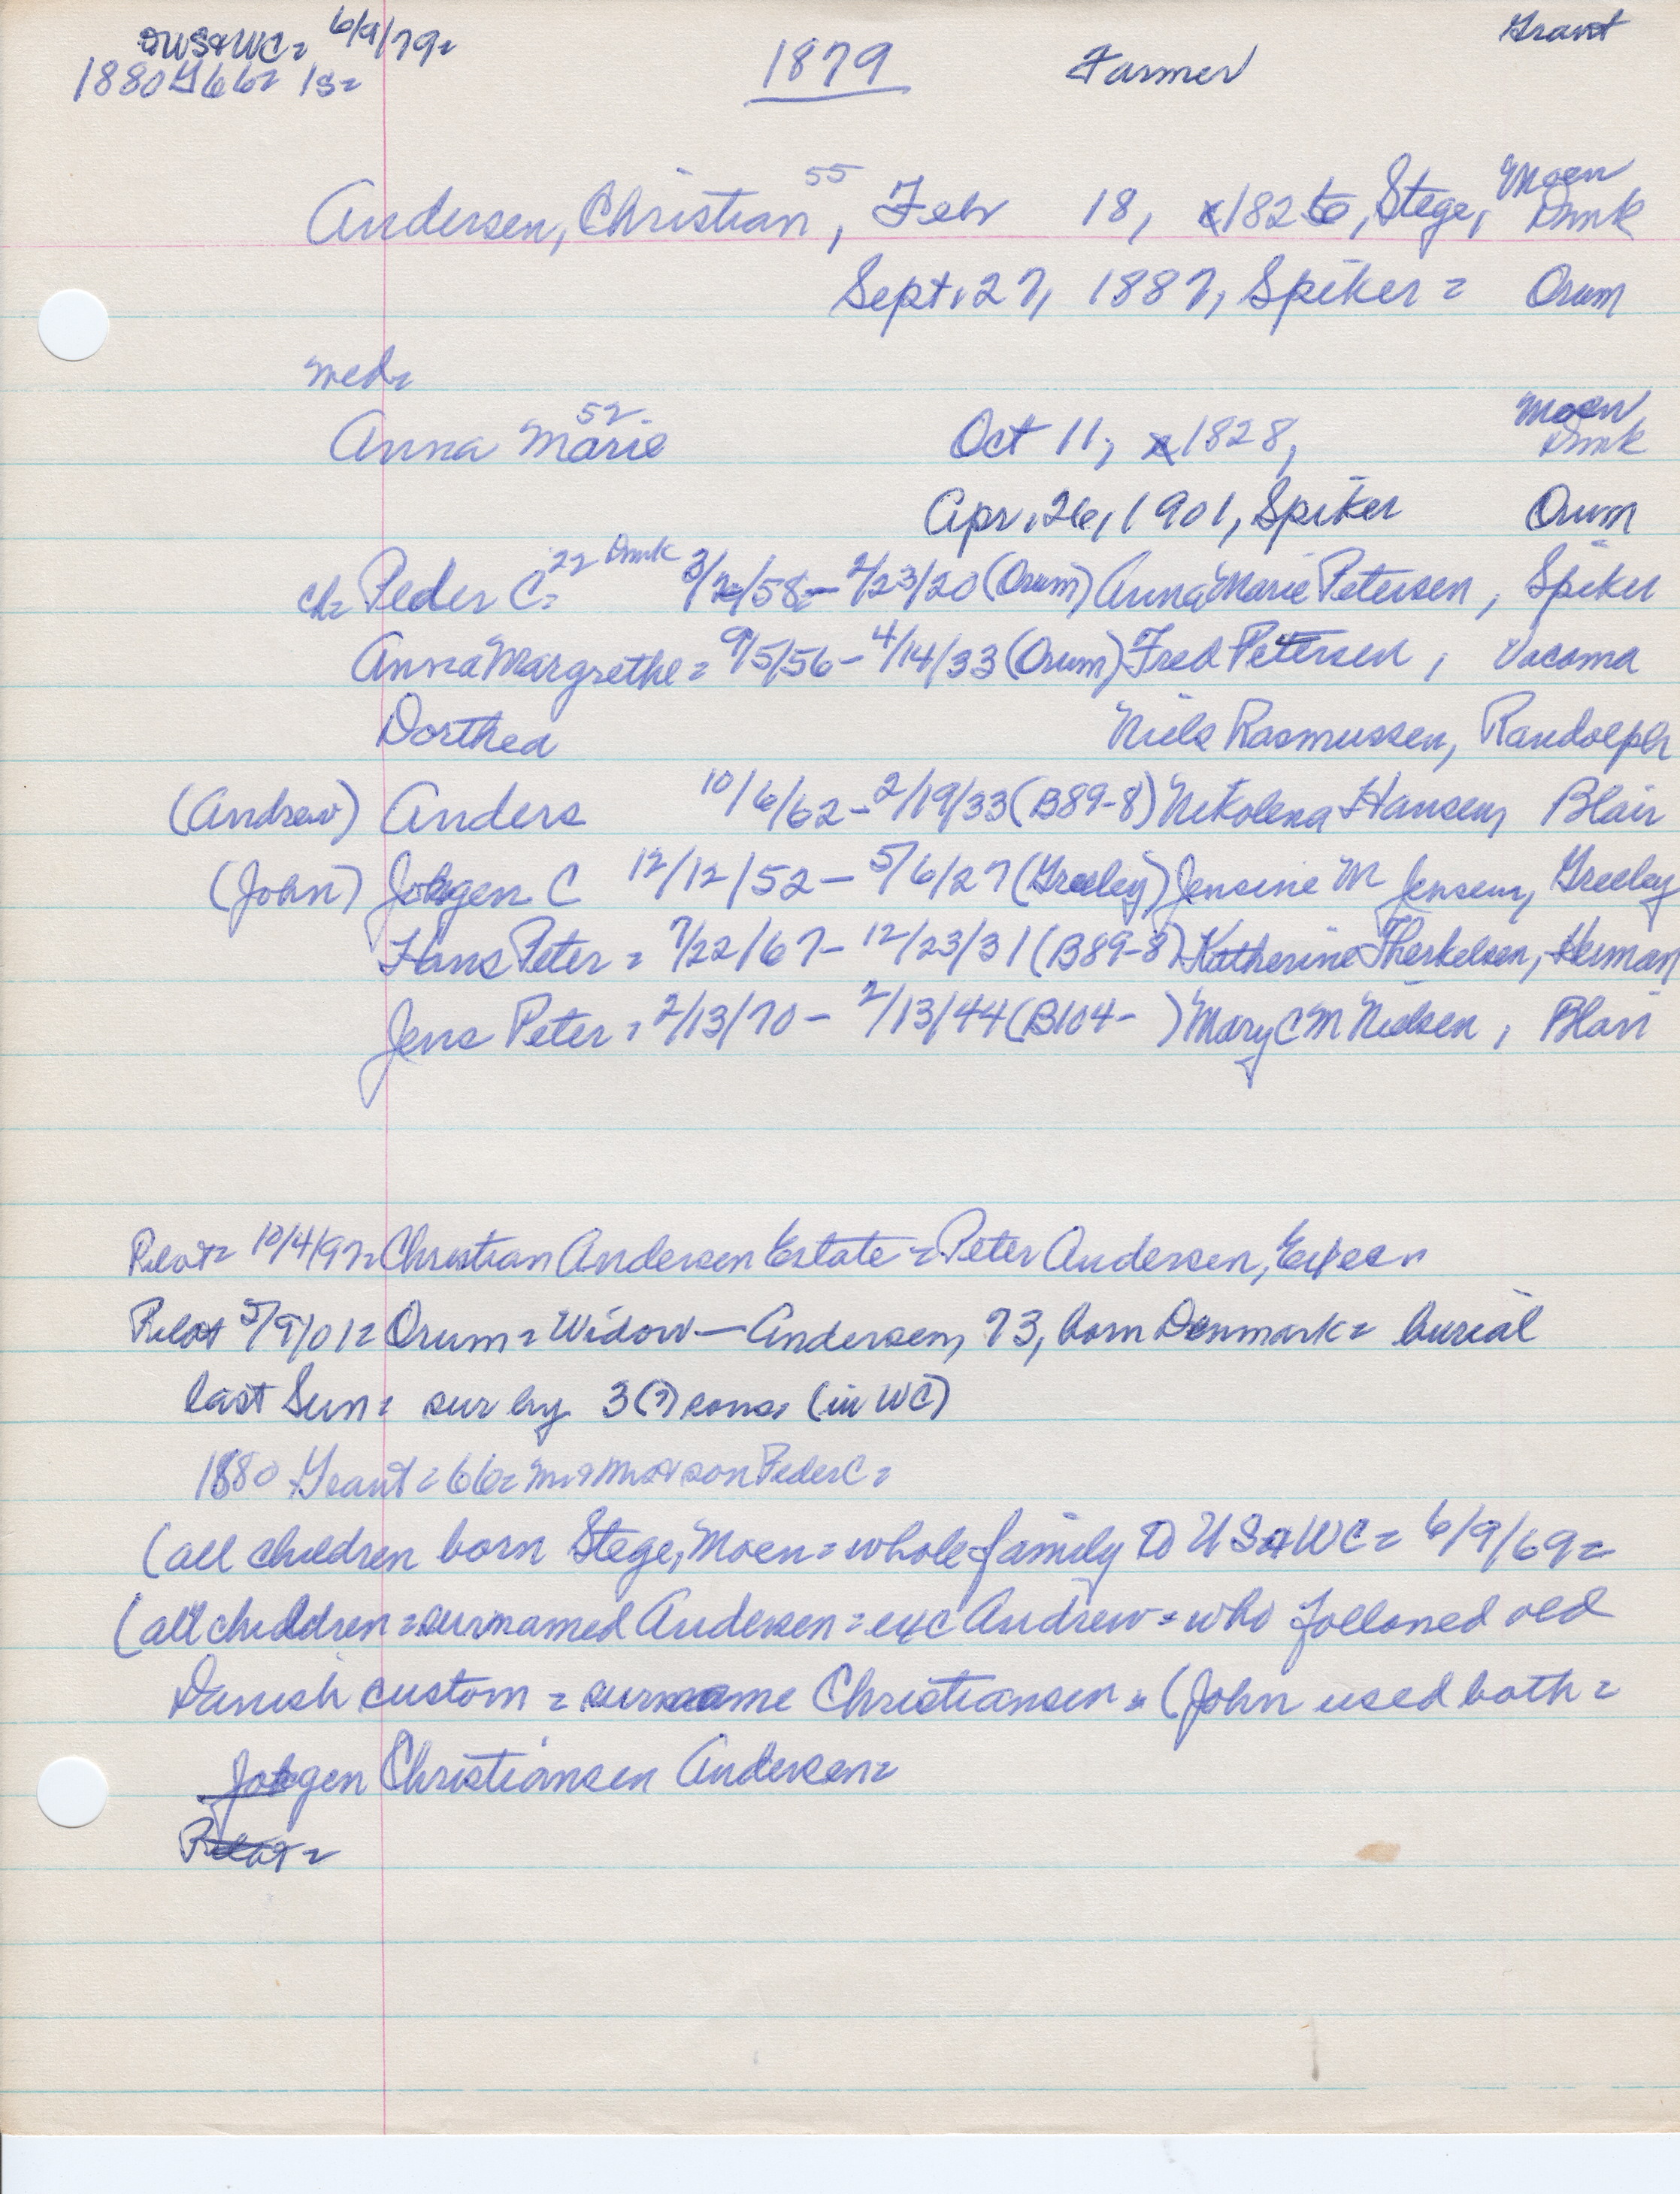 US&WC= 6/9/79= Grant
1880 G66= 1s=
1879 Farmer
55 Moen
Andersen, Christian, Feb 18, 1826, Stege, Dmk
Sept. 27, 1887, Spiker = Orum
med=
52 Moen
Anna Marie Oct 11, 1828, Dmk
Apr. 26, 1901, Spiker Orum
ch= Peder C= 22 Dmk 3/2/58 - 2/23/20 (Orum) Anna Marie Petersen, Spiker
Anna Margrethe = 9/5/56 - 4/14/33 (Orum) Fred Petersen, Vacoma
Dorthea Niels Rasmussen, Randolph
(Andrew) Anders 10/6/62 - 2/19/33 (B89-8) Nikolena Hansen, Blair
(John) Jorgen C 12/12/52 - 5/6/27 (Greeley) Jensine M Jensen, Greeley
Hans Peter = 7/22/67 - 12/23/31 (B89-8) Katherine Therkelsen, Herman
Jens Peter = 2/13/70 - 2/13/44 (B104- ) Mary C M Nielsen, Blair
Pilot= 10/4/97= Christian Andersen Estate = Peter Andersen,
Pilot 5/9/01= Orum = Widow — Andersen, 73, born Denmark = burial
last Sun= sur by 3(?) sons. (in WC)
1880 Grant = 66= Mr & Mrs & son Peder C =
(all children born Stege, Moen = whole family to US & WC = 6/9/69=
(all children = surnamed Andersen = exc Andrew = who followed old
Danish custom = surname Christiansen. (John used both =
Jorgen Christiansen Andersen=
Pilot =